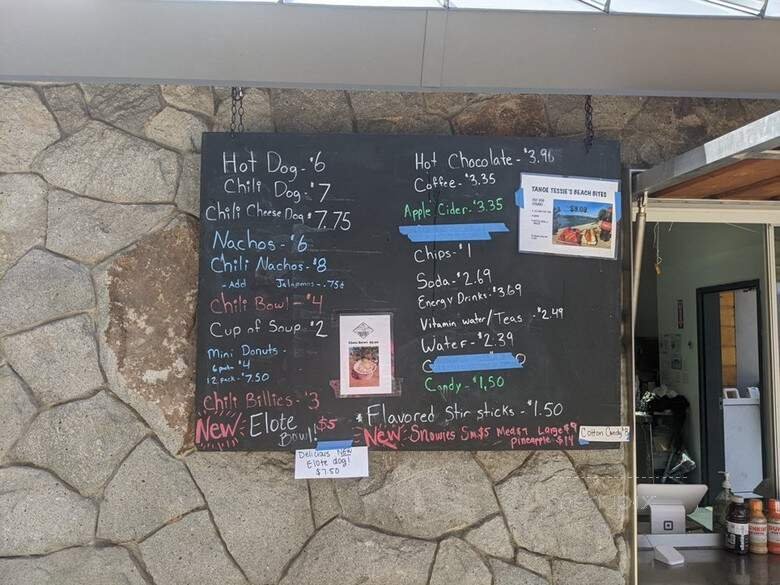 Hot Dog - $6
Chili Dog - $7
Chili Cheese Dog $7.75
Nachos - $6
Chili Nachos - $8
- Add Jalapenos - .75¢
Chili Bowl - $4
Cup of Soup $2
Mini Donuts -
6 pack $4
12 pack - $7.50
Chili Billies - $3
New Elote Bowl! $5
Delicious NEW
Elote dog!
$7.50
Hot Chocolate - $3.96
Coffee - $3.35
Apple Cider - $3.35
Chips - $1
Soda - $2.69
Energy Drinks - $3.69
Vitamin water/Teas - $2.49
Water - $2.39
Candy - $1.50
* Flavored Stir sticks - $1.50
New Snowies Sm $5 Med $7 Large $9
Pineapple $14
Cotton Candy
TAHOE TESSIE'S BEACH BITES
$9.09